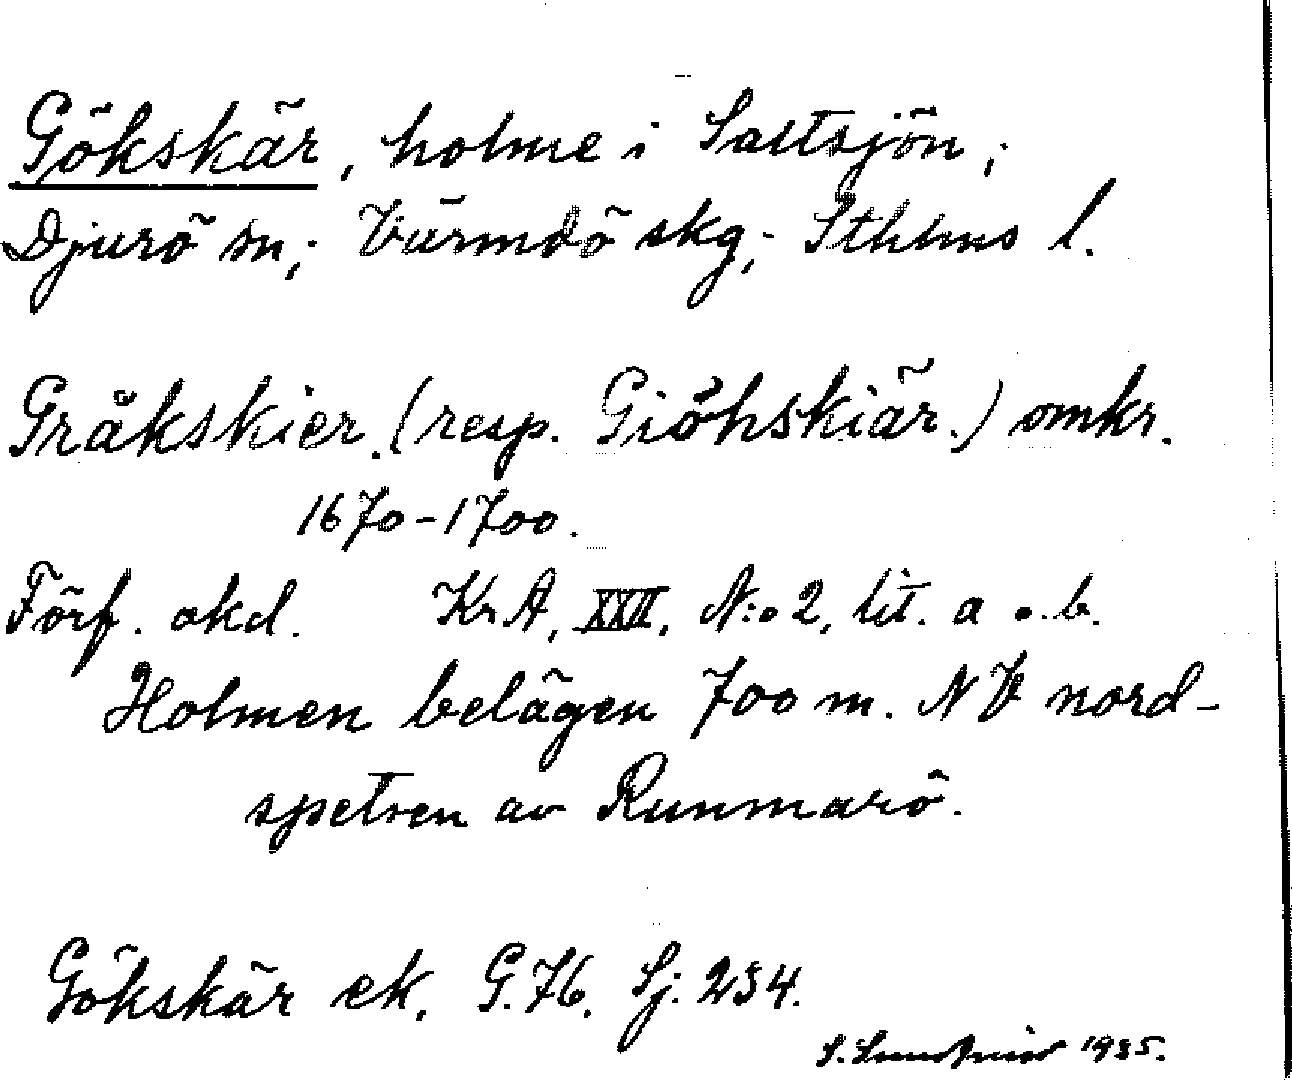 Gökskär, holme i Saltsjön,
Djurö sn, Värmdö skg, Sthlms l.
Gråkskier. (resp. Giöhskiär.) omkr.
1670-1700.
Förf. okd. KrA, XXII, N:o 2, lit. a o. b.
Holmen belägen 700 m. NV nord-
spetsen av Runmarö.
Gökskär ek. G.76. Sj. 234.
S. 1935.